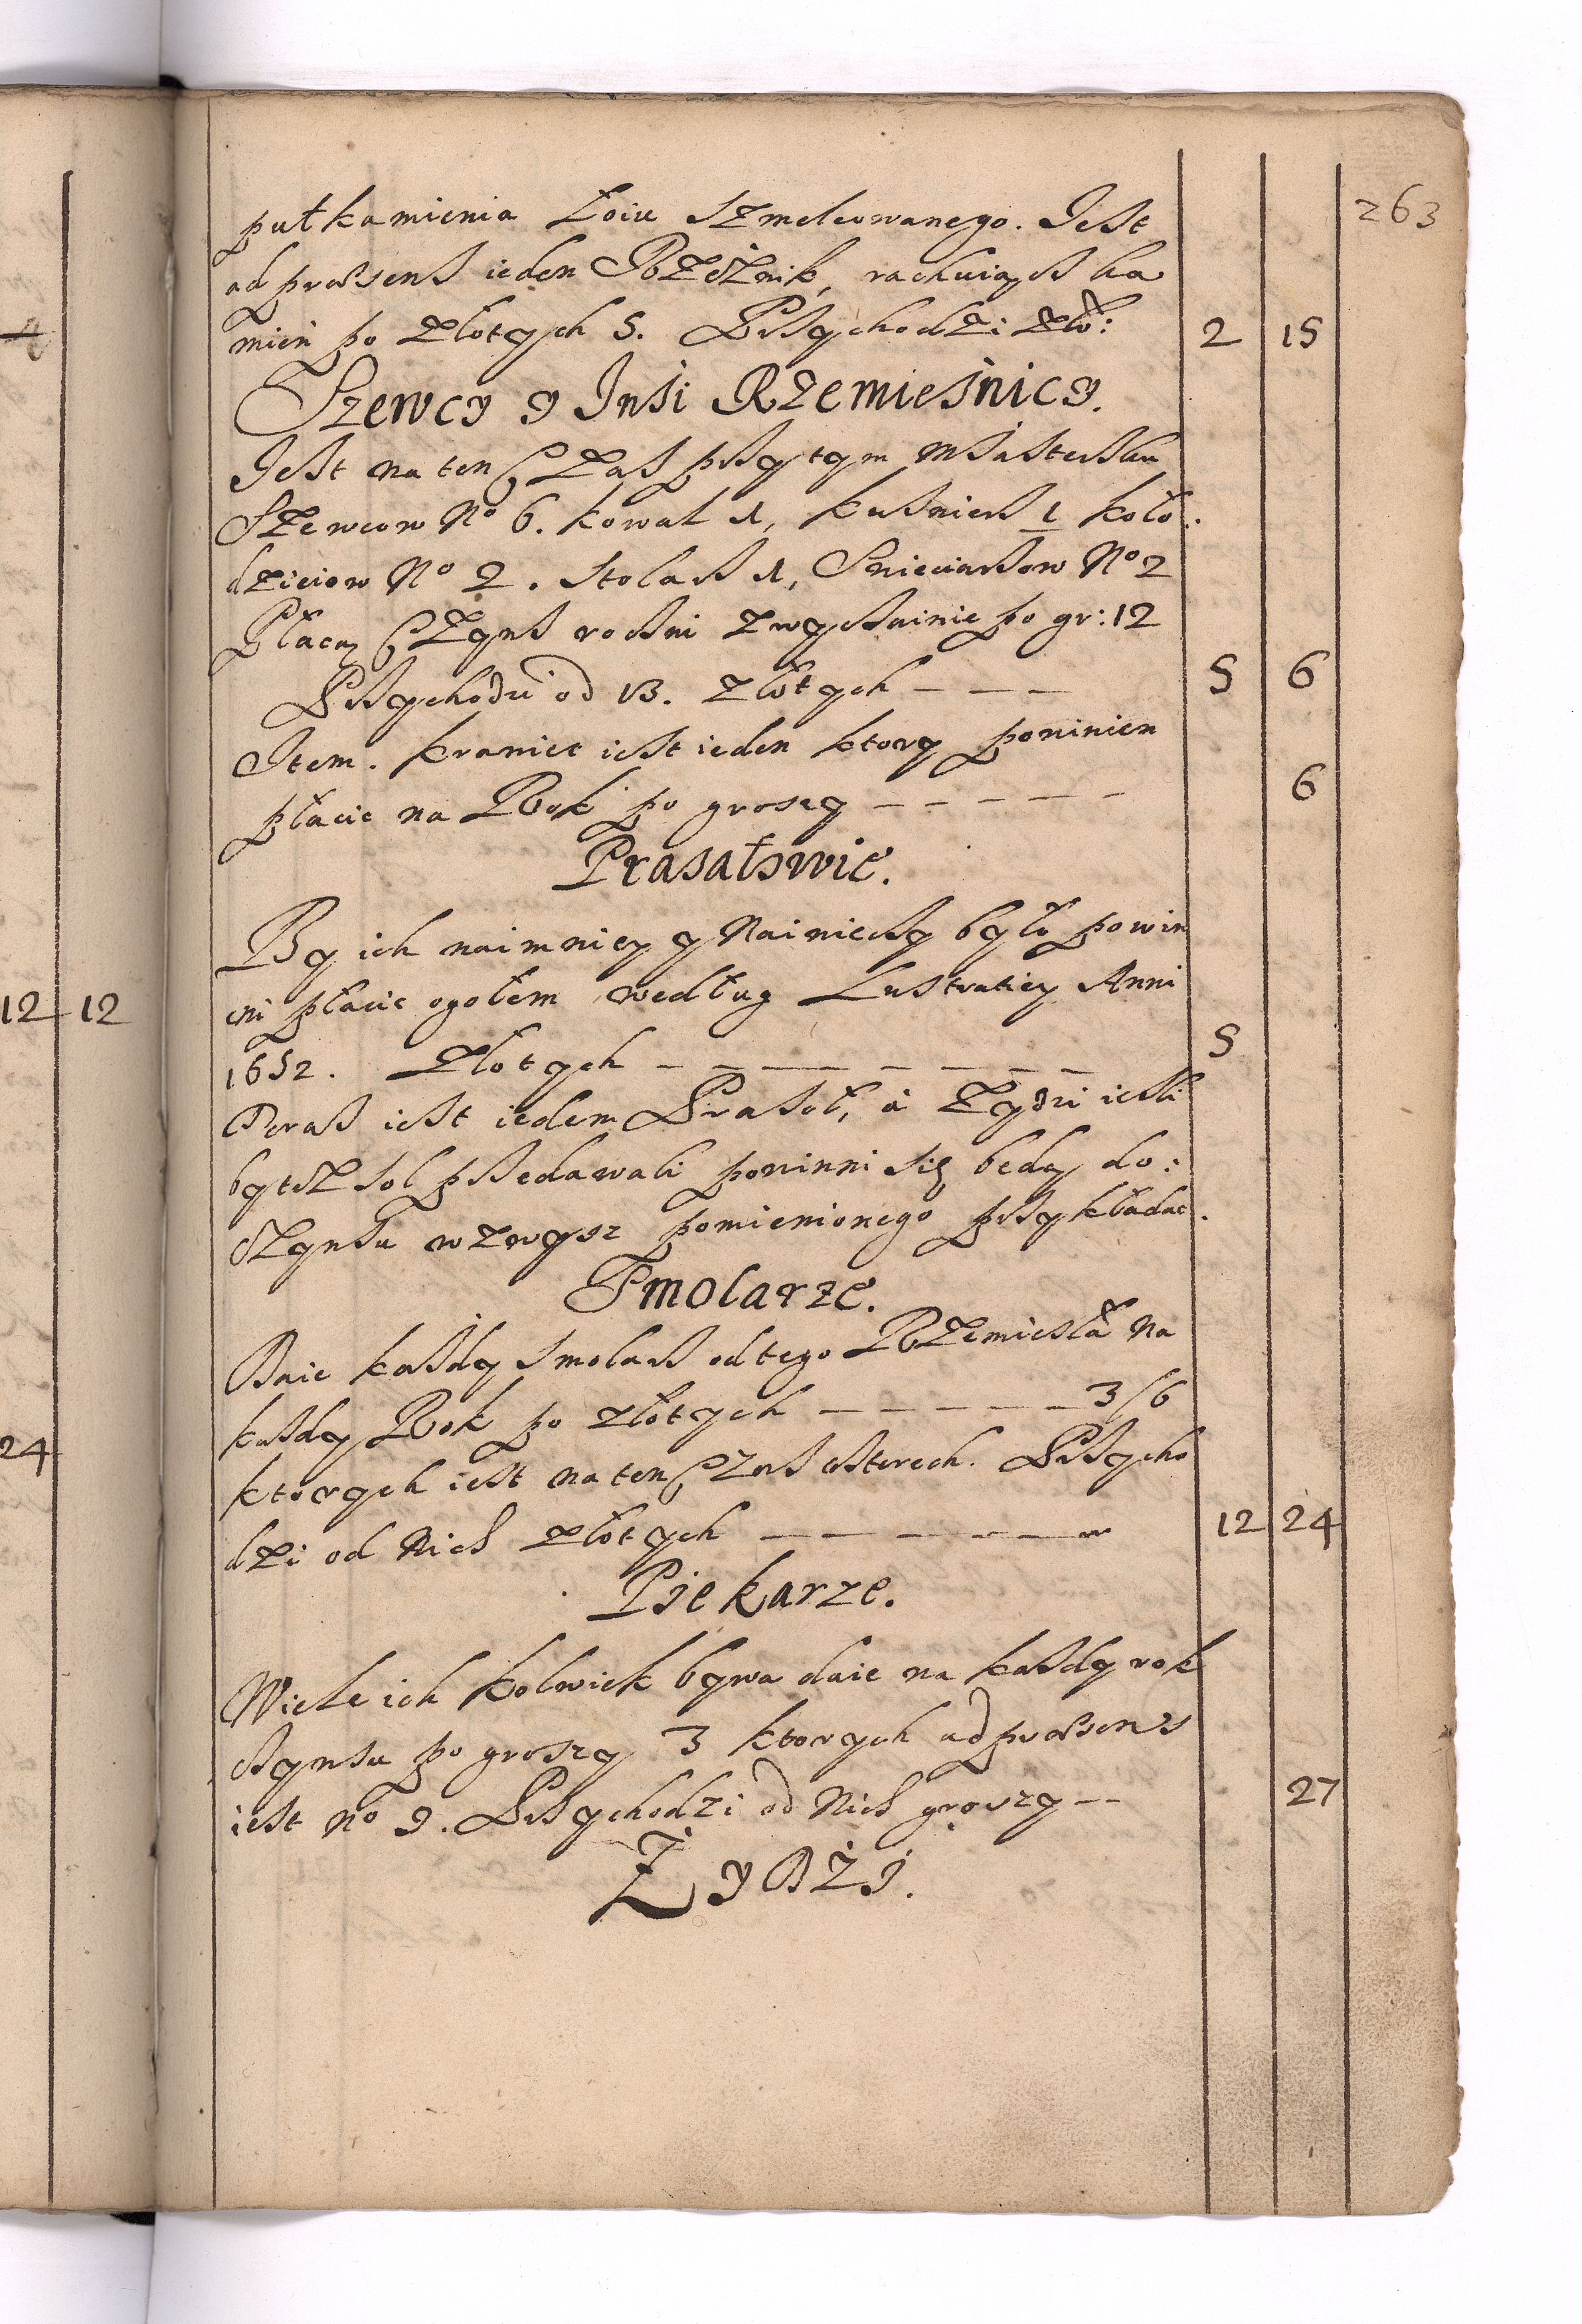 263
puł kamienia Łoiu Szmelcowanego. Jest
ad præsens ieden Rzeżnik, rachuiąc ka
mień po Złotych 5. Przychodzi Zło: 2 15
Szewcy y Insi Rzemieśnicy.
Jest na ten Czas przy tym Miasteczku
Szewcow No 6. kowal 1, kusnierz 1 koło
dzieiow No 2. Stolarz 1, Sniciarzow No 2
Płacą Czynsz roczni zwyczainie po gr: 12
Przychodzi od 13. Złotych – – – 5 6
Item. kramiec iest ieden ktory powinien
płacic na Rok po groszy – – – – – 6
Prasałowie.
By ich naimniey y Nainięczy było powin
cni płacic ogołem według Lustratiey Anni
1652. Złotych – – – – – – – 5
Teraz iest iedem Prasoł, á Zydzi iesli
bętsz sol przedawali powinni się będą do:
Czynszu wzwysz pomienionego przykładac.
Smolarze.
Daie każdy Smolarz od tego Rzemiesła Na
każdy Rok po złotych – – – – – 3/6
ktorych iest na ten Czas czterech. Przycho
dzi od Nich Złotych – – – – – – 12 24
Piekarze.
Wiele ich kolwiek bywa daie na każdy rok
czynszu po groszy 3 ktorych ad præsens
iest No 9. Przychodzi od Nich groszy – – 27
Zydzi.
12 12
24